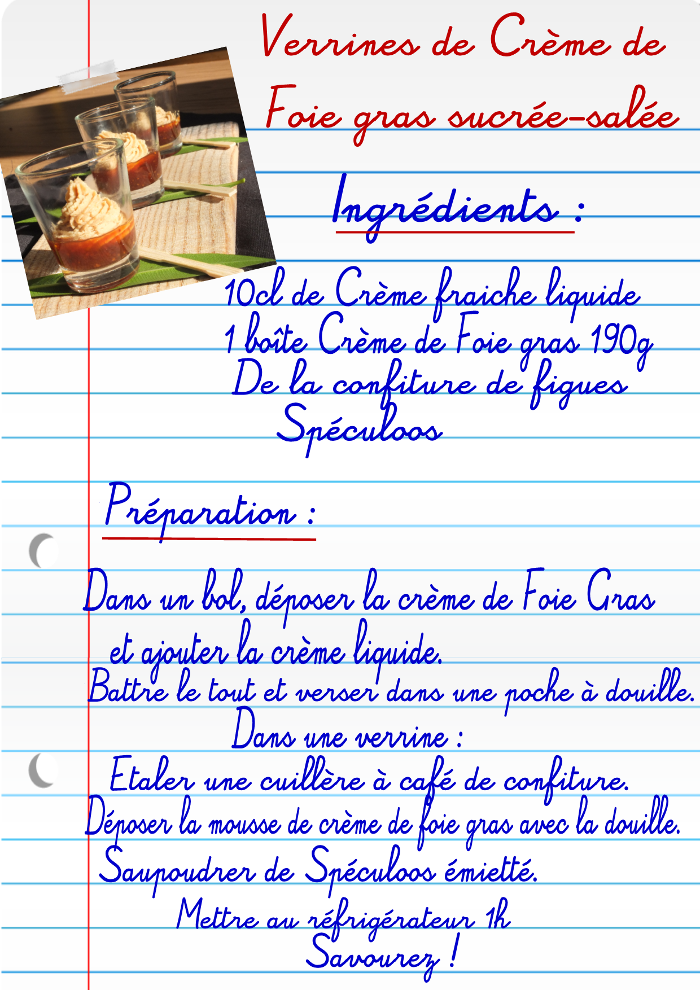 Verrines de Crème de
Foie gras sucrée-salée
Ingrédients :
10cl de Crème fraiche liquide
1 boîte Crème de Foie gras 190g
De la confiture de figues
Spéculoos
Préparation :
Dans un bol, déposer la crème de Foie Gras
et ajouter la crème liquide.
Battre le tout et verser dans une poche à douille.
Dans une verrine :
Etaler une cuillère à café de confiture.
Déposer la mousse de crème de foie gras avec la douille.
Saupoudrer de Spéculoos émietté.
Mettre au réfrigérateur 1h
Savourez !